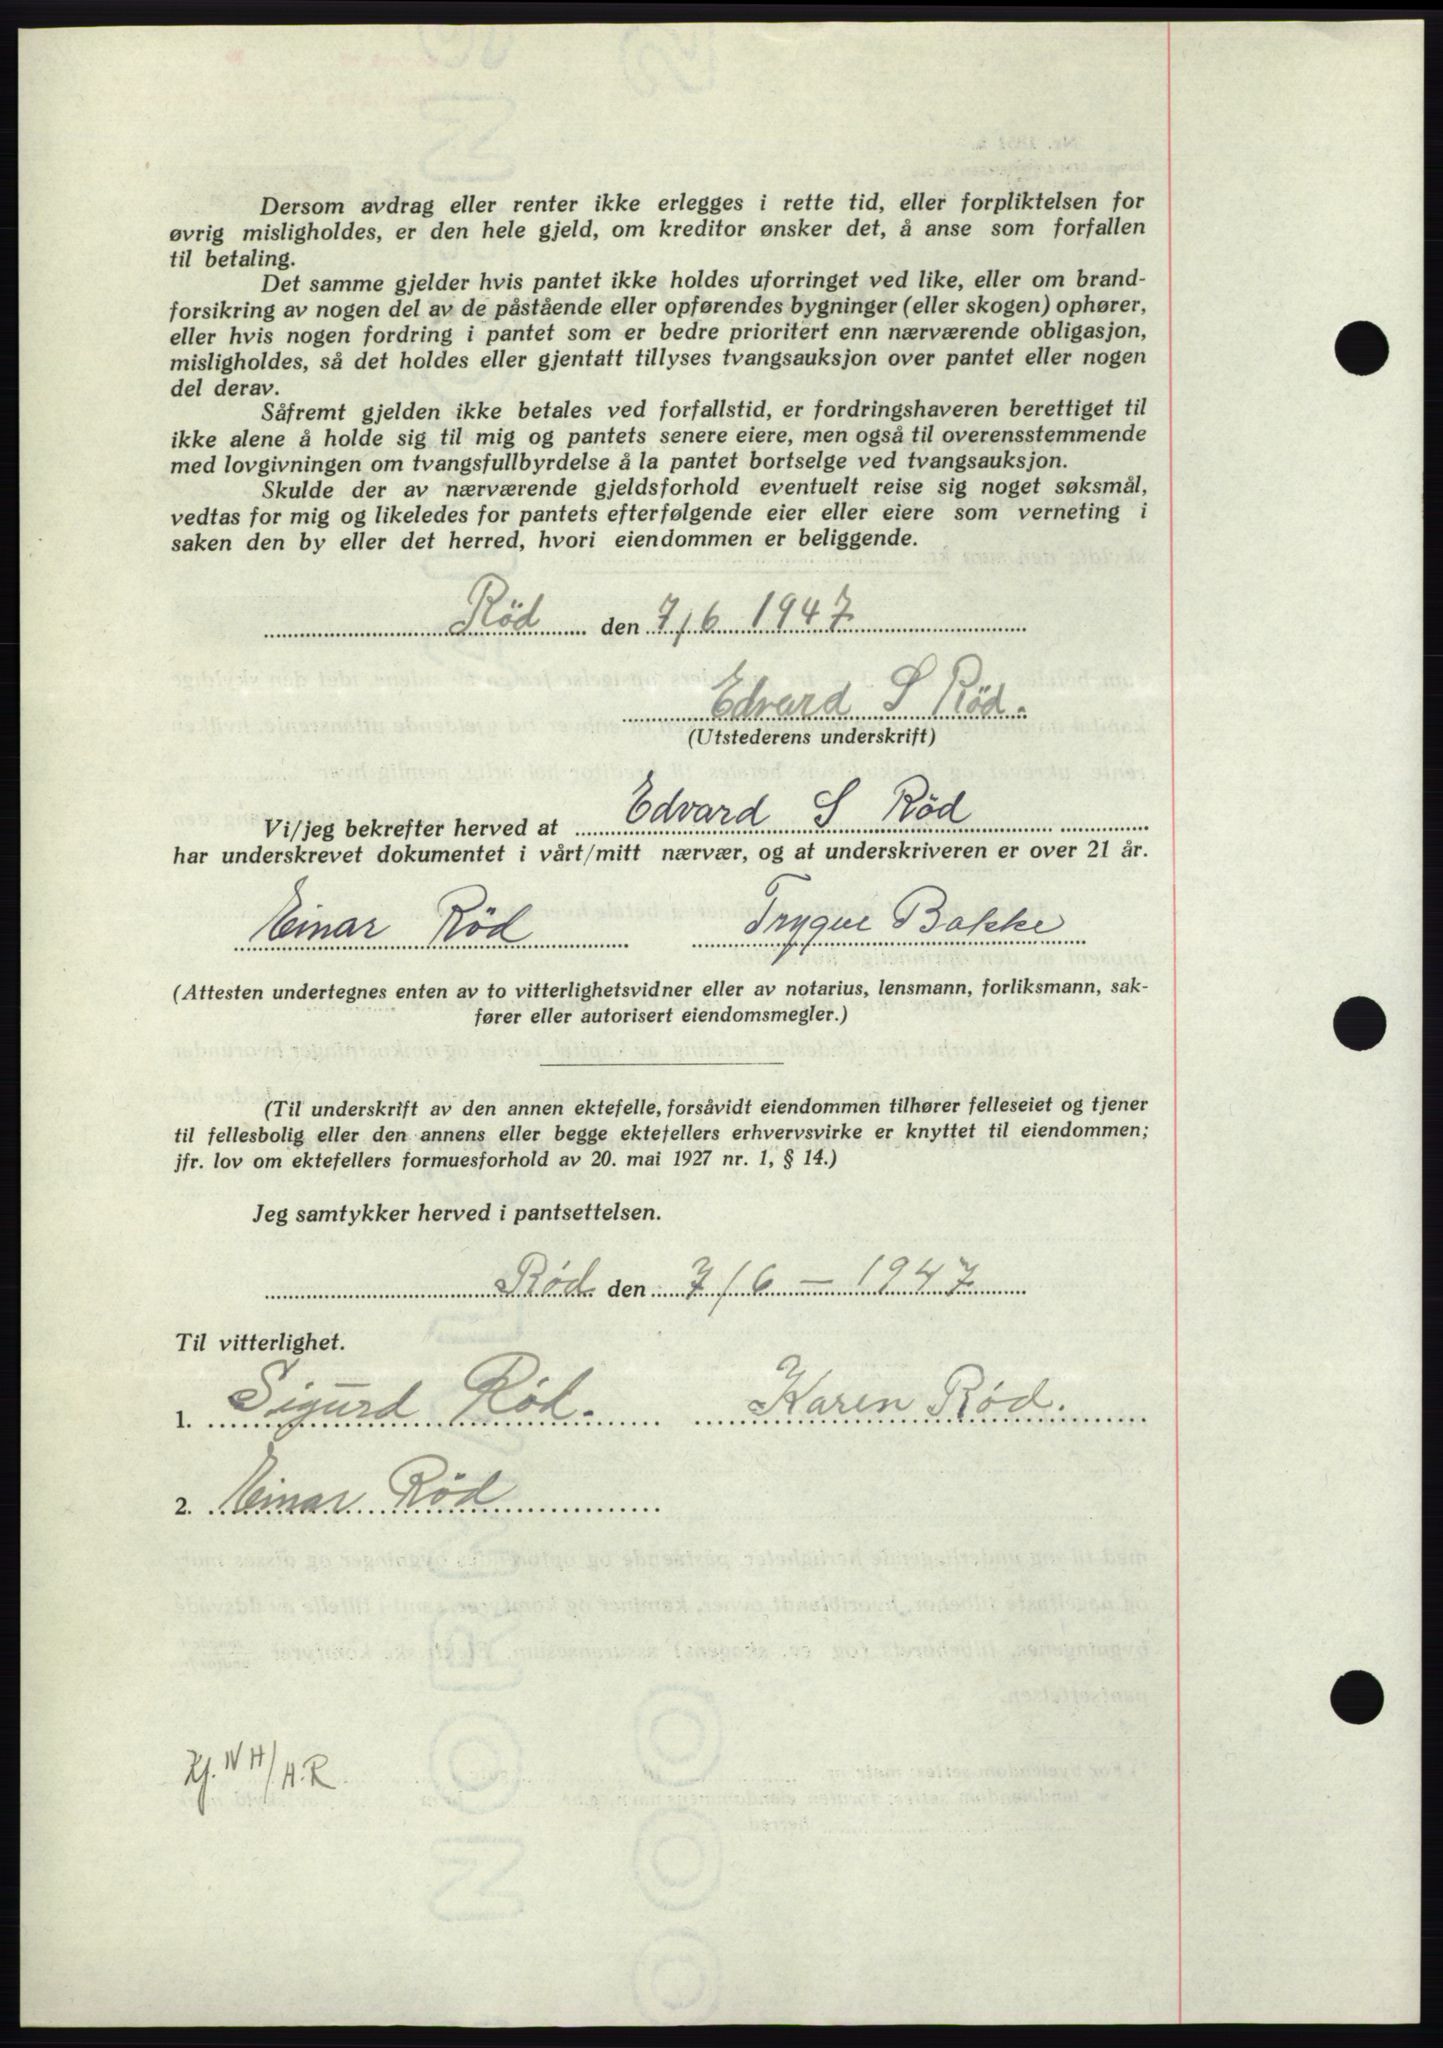 Dersom avdrag eller renter ikke erlegges i rette tid, eller forpliktelsen for
øvrig misligholdes, er den hele gjeld, om kreditor ønsker det, å anse som forfallen
til betaling.
Det samme gjelder hvis pantet ikke holdes uforringet ved like, eller om brand-
forsikring av nogen del av de påstående eller opførendes bygninger (eller skogen) ophører,
eller hvis nogen fordring i pantet som er bedre prioritert enn nærværende obligasjon,
misligholdes, så det holdes eller gjentatt tillyses tvangsauksjon over pantet eller nogen
del derav.
Såfremt gjelden ikke betales ved forfallstid, er fordringshaveren berettiget til
ikke alene å holde sig til mig og pantets senere eiere, men også til overensstemmende
med lovgivningen om tvangsfullbyrdelse å la pantet bortselge ved tvangsauksjon.
Skulde der av nærværende gjeldsforhold eventuelt reise sig noget søksmål,
vedtas for mig og likeledes for pantets efterfølgende eier eller eiere som verneting i
saken den by eller det herred, hvori eiendommen er beliggende.
Röd den 7/6 1947
Edvard S Röd.
(Utstederens underskrift)
Vi/jeg bekrefter herved at Edvard S Röd
har underskrevet dokumentet i vårt/mitt nærvær, og at underskriveren er over 21 år.
Einar Röd Trygve Bakke
(Attesten undertegnes enten av to vitterlighetsvidner eller av notarius, lensmann, forliksmann, sak-
fører eller autorisert eiendomsmegler.)
(Til underskrift av den annen ektefelle, forsåvidt eiendommen tilhører felleseiet og tjener
til fellesbolig eller den annens eller begge ektefellers erhvervsvirke er knyttet til eiendommen;
jfr. lov om ektefellers formuesforhold av 20. mai 1927 nr. 1, § 14.)
Jeg samtykker herved i pantsettelsen.
Rød den 7/6 - 1947
Til vitterlighet.
1. Sigurd Röd. Karen Rød.
2. Einar Röd